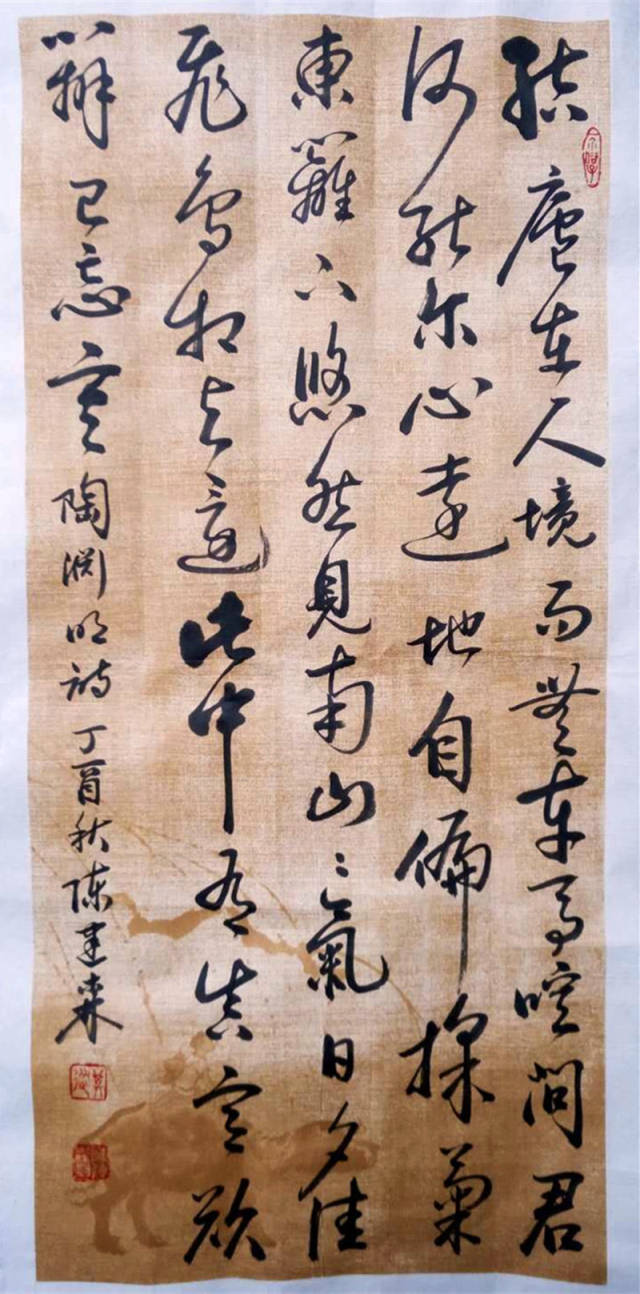 結廬在人境而無車馬喧問君
何能尔心遠地自偏採菊
東籬下悠然見南山〻氣日夕佳
飛鳥相与還此中有真意欲
辨已忘言陶淵明詩丁酉秋陳建森